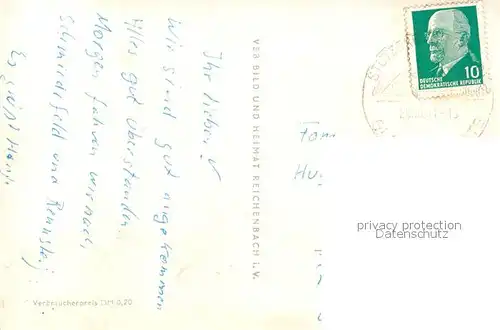 Ihr Lieben!
Wir sind gut angekommen
Alles gut überstanden.
Morgen fahren wir nach
Schmiedefeld und Rennsteig
Es grüßt Hans.
VEB BILD UND HEIMAT REICHENBACH i. V.
Verbraucherpreis MDN 0,20
10
DEUTSCHE
DEMOKRATISCHE REPUBLIK
Fam
privacy protection
Datenschutz